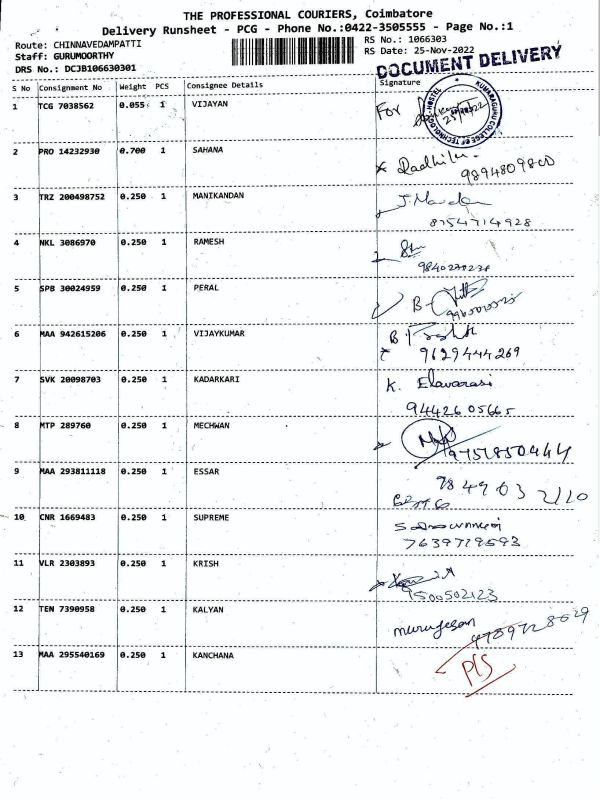 THE PROFESSIONAL COURIERS, Coimbatore
Delivery Runsheet - PCG - Phone No.:0422-3505555 - Page No.:1
Route: CHINNAVEDAMPATTI
RS No.: 1066303
Staff: GURUMOORTHY
RS Date: 25-Nov-2022
DRS No.: DCJB106630301
DOCUMENT DELIVERY
S No Consignment No Weight PCS Consignee Details Signature
1 TCG 7038562 0.055 1 VIJAYAN For
KUMARAGURU COLLEGE OF TECHNOLOGY HOSTEL
2 PRO 14232930 0.700 1 SAHANA
9894809800
3 TRZ 200498752 0.250 1 MANIKANDAN
8754714928
4 NKL 3086970 0.250 1 RAMESH
5 SPB 30024959 0.250 1 PERAL
6 MAA 942615206 0.250 1 VIJAYKUMAR
9629444269
7 SVK 20098703 0.250 1 KADARKARI K. Elavarasi
9442605665
8 MTP 289760 0.250 1 MECHWAN
9751850444
9 MAA 293811118 0.250 1 ESSAR
10 CNR 1669483 0.250 1 SUPREME
7639719593
11 VLR 2303893 0.250 1 KRISH
9500502123
12 TEN 7390958 0.250 1 KALYAN murugesan
13 MAA 295540169 0.250 1 KANCHANA